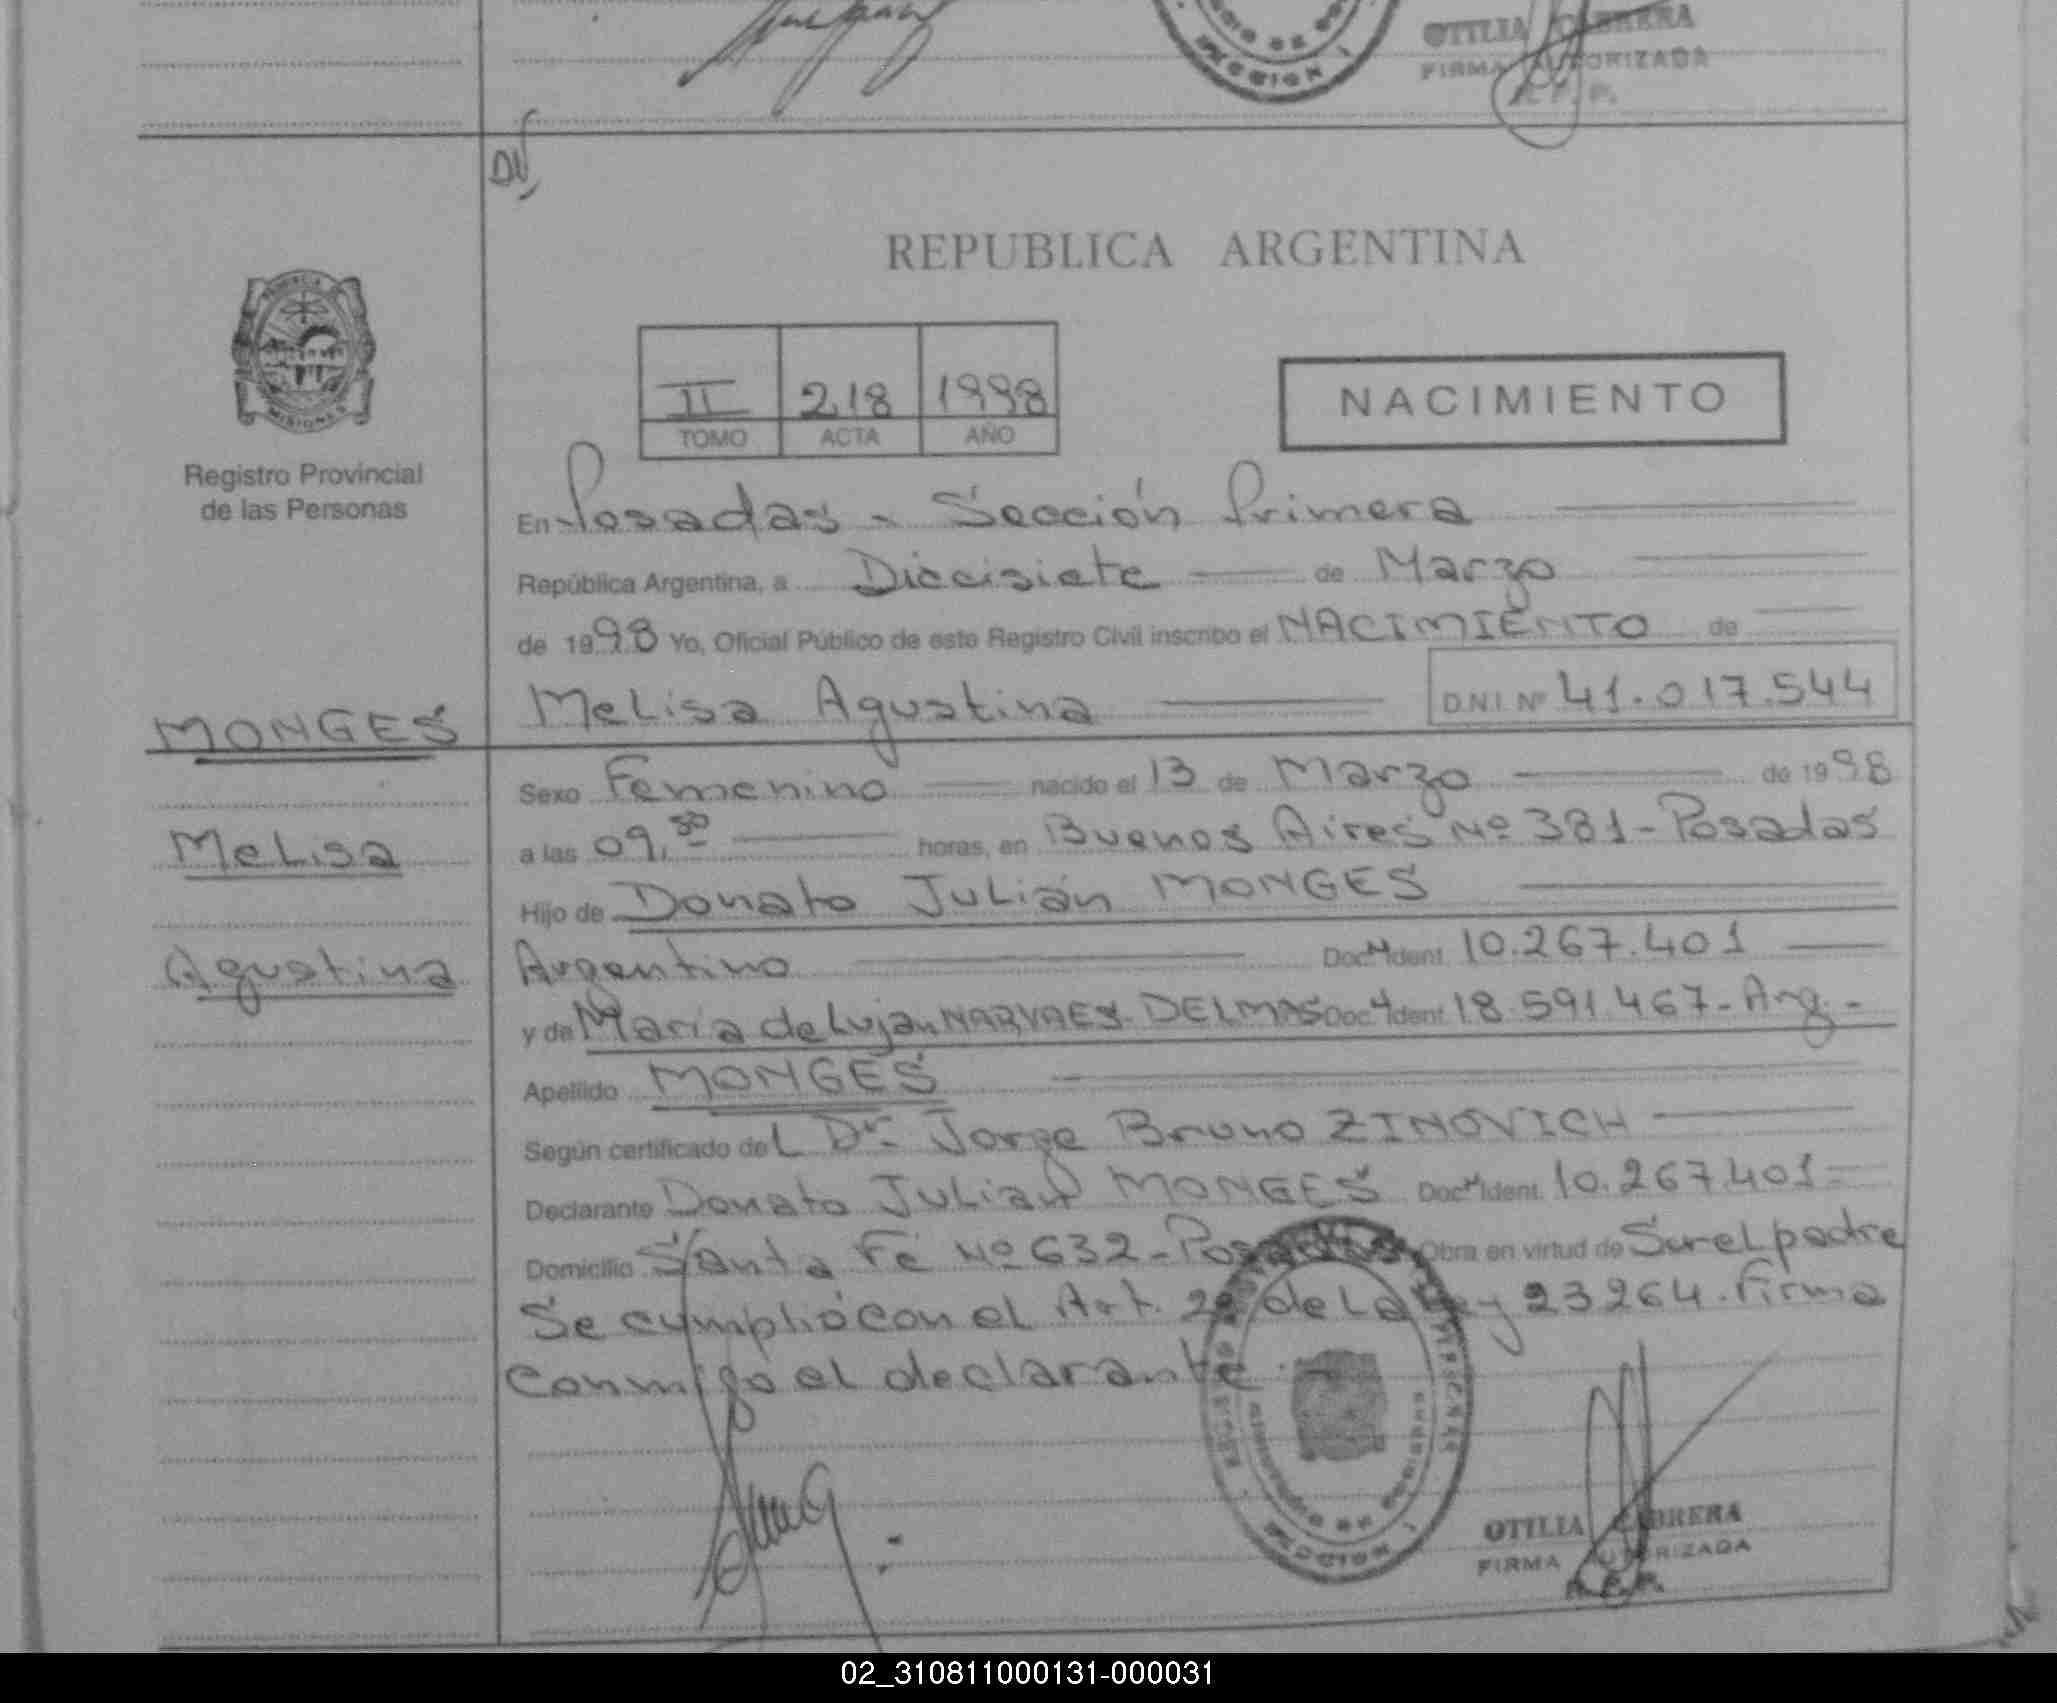 OTILIA CABRERA
FIRMA AUTORIZADA
R. P. P.
REPUBLICA ARGENTINA
PROVINCIA
MISIONES
Registro Provincial
de las Personas
II 218 1998
TOMO ACTA AÑO
NACIMIENTO
En Posadas - Sección Primera
República Argentina, a Diecisiete de Marzo
de 1998 Yo, Oficial Público de este Registro Civil inscribo el NACIMIENTO de
MONGES
Melisa Agustina D.N.I. Nº 41.017.544
Sexo Femenino nacido el 13 de Marzo de 1998
Melisa
a las 09, horas, en Buenos Aires Nº 381 - Posadas
Hijo de Donato Julián MONGES
Agustina
Argentino Doc. Ident. 10.267.401
y de María de Lujan NARVAES DELMAS Doc. Ident. 18.591.467 - Arg. -
Apellido MONGES
Según certificado del Dr. Jorge Bruno ZINOVICH
Declarante Donato Julian MONGES Doc. Ident. 10.267.401 =
Domicilio Santa Fé Nº 632 - Posadas Obra en virtud de Ser el padre
Se cumplió con el Art. de la Ley 23264. Firma
conmigo el declarante. -
SECCION 1
OTILIA CABRERA
FIRMA AUTORIZADA
R. P. P.
02_310811000131-000031